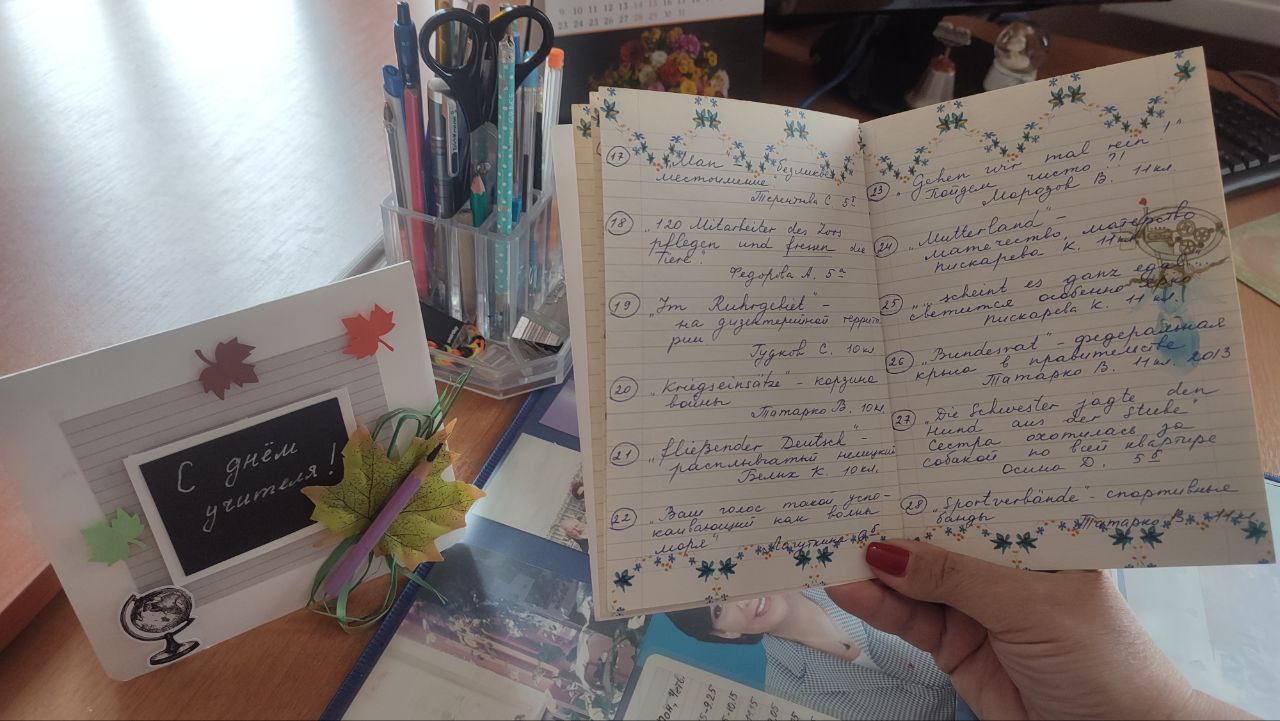 9 10 11 12 13 14 15
23 24 25 26 27 28 29 30 31
С днём
учителя!
17 "Man" - "безликое
местоимение"
Терентьева С. 5 б
18 "120 Mitarbeiter des Zoos
pflegen und fressen die
Tiere".
Федорова А. 5 а
19 "Im Ruhrgebiet" -
на дизентерийной террито-
рии
Гудков С. 10 кл
20 "Kriegseinsätze" - корзина
войны
Татарко В. 10 кл.
21 "fließender Deutsch" -
расплывчатый немецкий
Белых К. 10 кл.
22 "Ваш голос такой успо-
каивающий как волны
моря"
23 "Gehen wir mal rein!"
Пойдем чисто?!
Морозов В. 11 кл.
24 "Mutterland" -
матечество, матерство
Пискарева К. 11 кл
25 "... scheint es ganz egal..."
светится особенно
Пискарева К. 11 кл.
26 "Bundesrat" - федеративная
крыса в правительстве
Татарко В. 11 кл. 2013
27 "Die Schwester jagte den
Hund aus der Stube"
Сестра охотилась за
собакой по всей квартире
Осина Д. 5 б
28 "Sportverbände" - спортивные
банды
Татарко В. 11 кл
Пон, Четв.